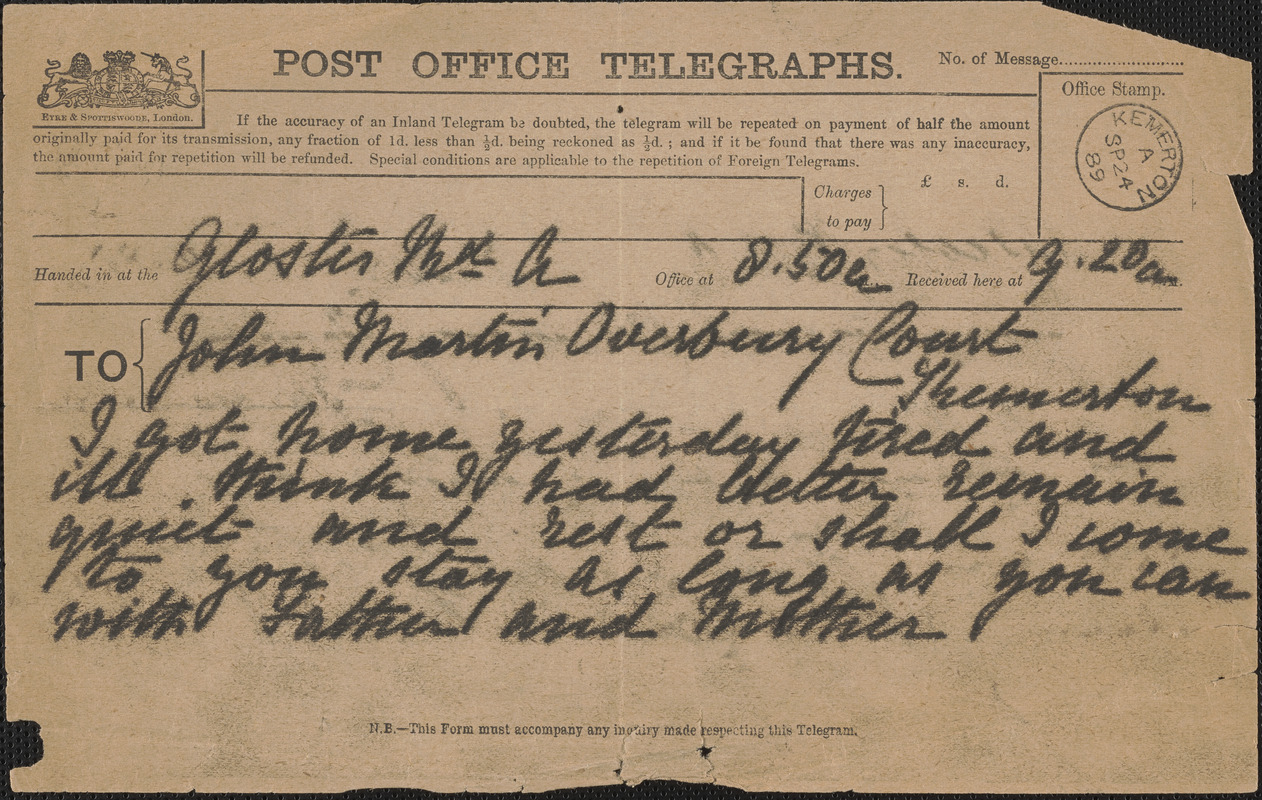 POST OFFICE TELEGRAPHS.
No. of Message
Office Stamp.
EYRE & SPOTTISWOODE, London.
KEMERTON
A
SP24
89
If the accuracy of an Inland Telegram be doubted, the telegram will be repeated on payment of half the amount
originally paid for its transmission, any fraction of 1d. less than ½d. being reckoned as ½d. ; and if it be found that there was any inaccuracy,
the amount paid for repetition will be refunded. Special conditions are applicable to the repetition of Foreign Telegrams.
Charges
to pay
£ s. d.
Handed in at the Gloster Rd A Office at 8.50a Received here at 9.20a m.
TO John Martin Overbury Court
Khemerton
I got home yesterday tired and
ill think I had better remain
quiet and rest or shall I come
to you stay as long as you can
with Father and Mother
N.B.—This Form must accompany any inquiry made respecting this Telegram.